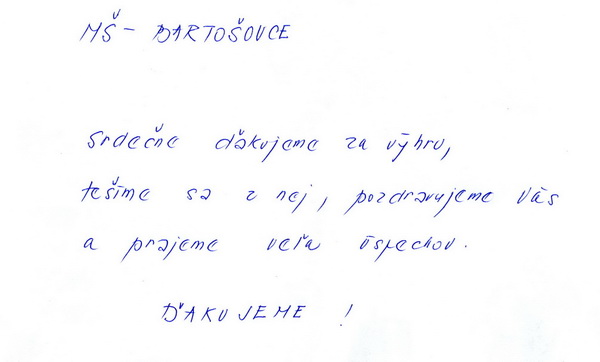 MŠ - BARTOŠOVCE
Srdečne ďakujeme za výhru,
tešíme sa z nej, pozdravujeme Vás
a prajeme veľa úspechov.
ĎAKUJEME !